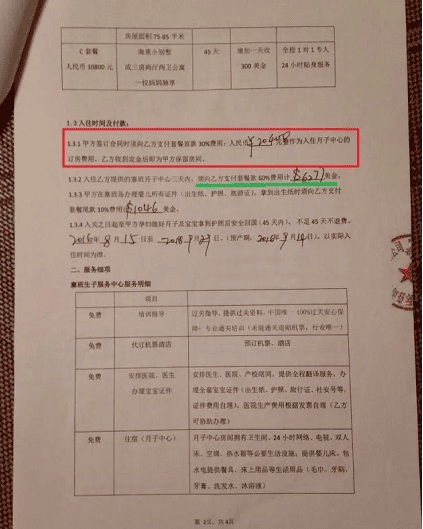 房屋面积 75-85 平米
C 套餐
人民币 10800 元
海景小别墅
或三房两厅两卫公寓
一拉妈妈独享
45 天
增加一天收
300 美金
全程 1 对 1 专人
24 小时贴身服务
1.3 入住时间及付款:
1.3.1 甲方签订合同时须向乙方支付套餐首款 30%费用:人民币 作为入住月子中心的
订房费用。乙方收到定金后即为甲方保留房间。
1.3.2 入住乙方提供的塞班月子中心三天内,须向乙方支付套餐款 60%费用计 $6277 美金。
1.3.3 甲方在塞班岛办理婴儿所有证件(出生纸、护照、旅游证),拿到出生纸时须向乙方支付
套餐尾款 10%费用计 $1046 美金。
1.3.4 入关之日起至甲方孕妇做好月子及宝宝拿到护照后安全回国(45 天内),不足 45 天不退费。
8 月 15 日至 9 月 日。(预产期: 9 月 14 日),以实际入
住时间为准。
二、服务细项
塞班生子服务中心服务明细
项目
免费
培训指导
过关指导,提供过关资料,
免费
代订机票酒店
预订机票、酒店
免费
安排医院、医生
办理宝宝证件
安排医生、医院、产检陪同,提供全程翻译服务,办
理全套宝宝证件(出生纸、护照、旅行证、社安号等,
证件费用自理),医院生产费用根据发票自理(乙方
可协助办理)
免费
住宿(月子中心)
月子中心房间拥有卫生间、24 小时网络、电视、双人
床、空调、热水器等必要生活设施;提供婴儿床,包
水电提供餐具、床上用品等生活用品(毛巾、牙刷、
牙膏、洗发水、沐浴液)
第 2页,共 4页